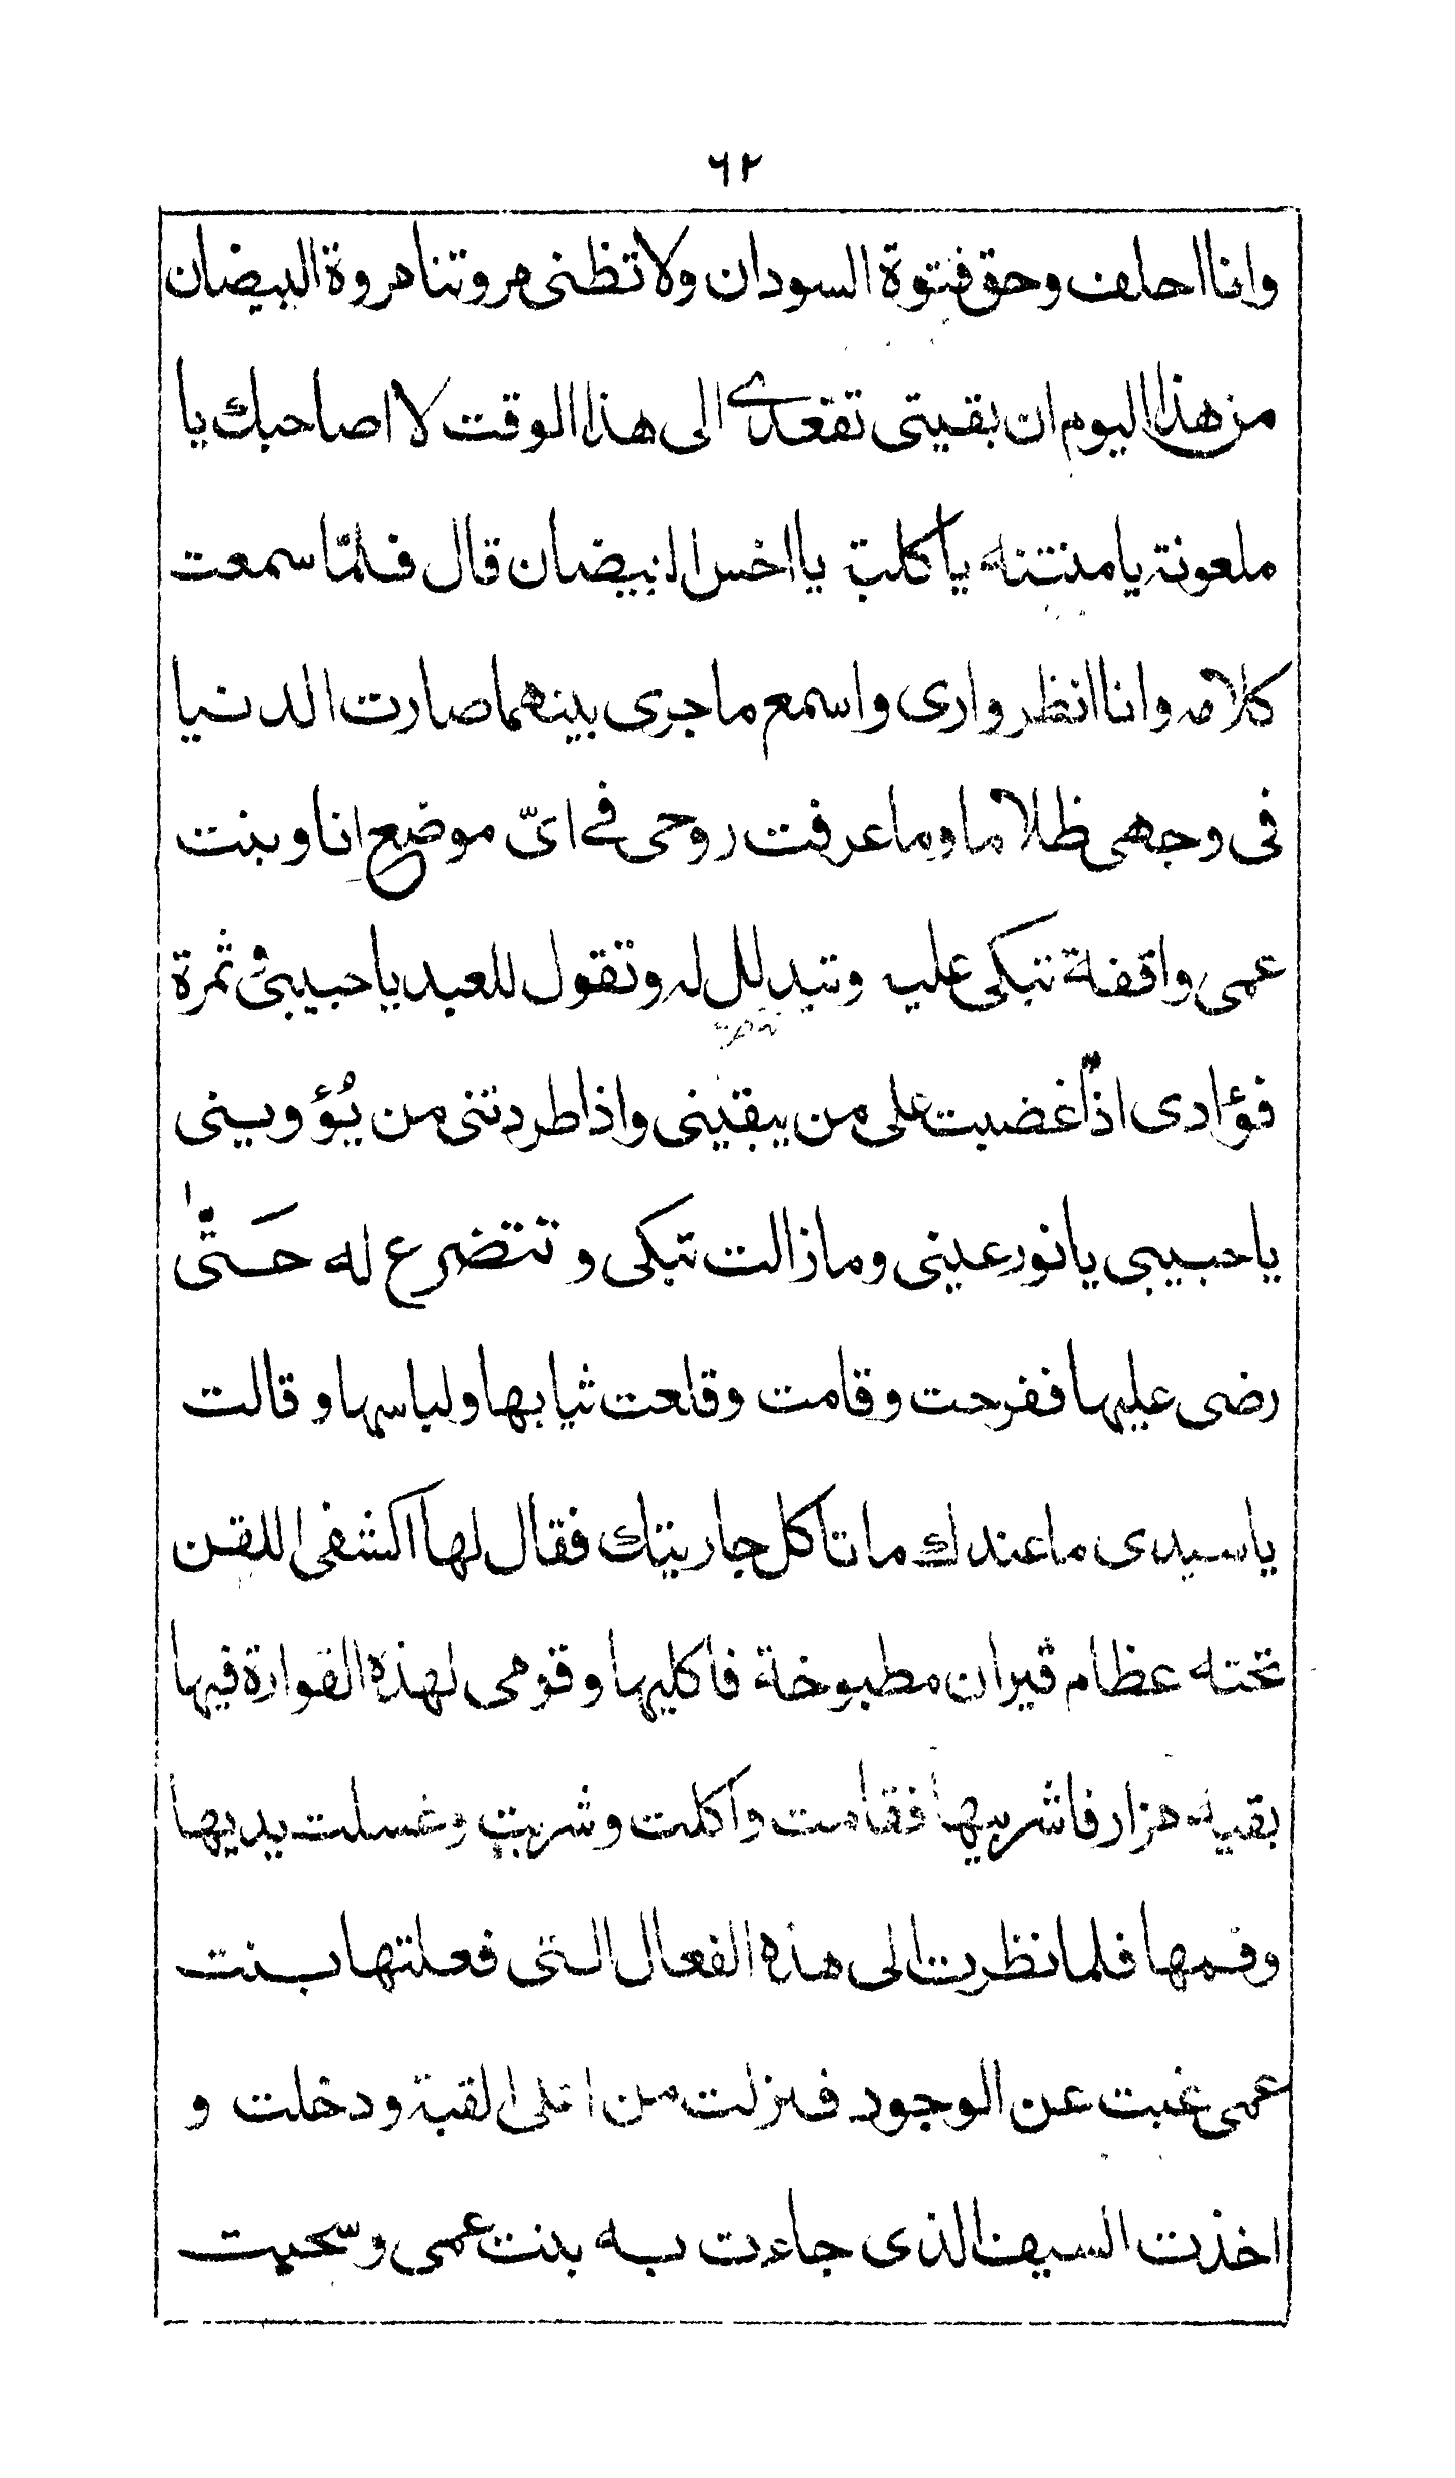 ٦٢
وانا احلف وحق فتوة السودان ولا تظنى مروتنا مروة البيضان
من هذا اليوم ان بقيتى تقعدى الى هذا الوقت لا اصاحبك يا
ملعونة يا منتنه يا كلبة يا اخس البيضان قال فلمّا سمعت
كلامه وانا انظر وارى واسمع ما جرى بينهما صارت الدنيا
فى وجهى ظلاما وما عرفت روحى فى اىّ موضع انا وبنت
عمى واقفة تبكى عليه وتتدلل له وتقول للعبد يا حبيبى ثمرة
فؤادى اذا غضبت على من يبقينى واذا طردتنى من يُؤوينى
يا حبيبى يا نور عينى وما زالت تبكى وتتضرع له حَتّىٰ
رضى عليها ففرحت وقامت وقلعت ثيابها ولباسها وقالت
يا سيدى ما عندك ما تاكل جاريتك فقال لها اكشفى اللقن
تحته عظام فيران مطبوخة فاكليها وقومى لهذه القوارة فيها
بقيه مزار فاشربيها فقامت واكلت وشربت وغسلت يديها
وفمها فلما نظرت الى هذه الفعال التى فعلتها بنت
عمى غبت عن الوجود فنزلت من اعلى القبة ودخلت و
اخذت السيف الذى جاءت به بنت عمى وسحبت